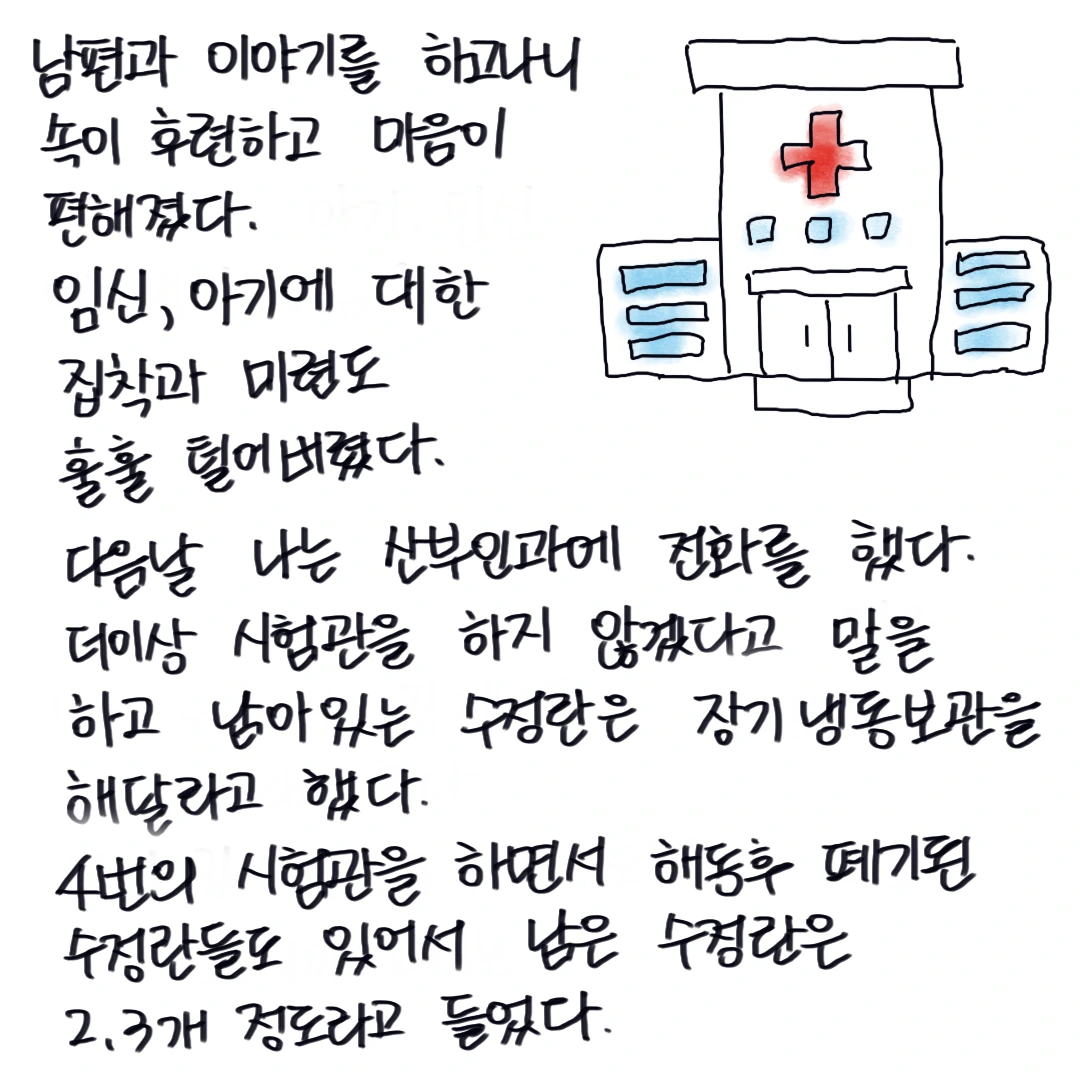 남편과 이야기를 하고나니
속이 후련하고 마음이
편해졌다.
임신, 아기에 대한
집착과 미련도
훌훌 털어버렸다.
다음날 나는 산부인과에 전화를 했다.
더이상 시험관을 하지 않겠다고 말을
하고 남아있는 수정란은 장기냉동보관을
해달라고 했다.
4번의 시험관을 하면서 해동후 폐기된
수정란들도 있어서 남은 수정란은
2.3개 정도라고 들었다.